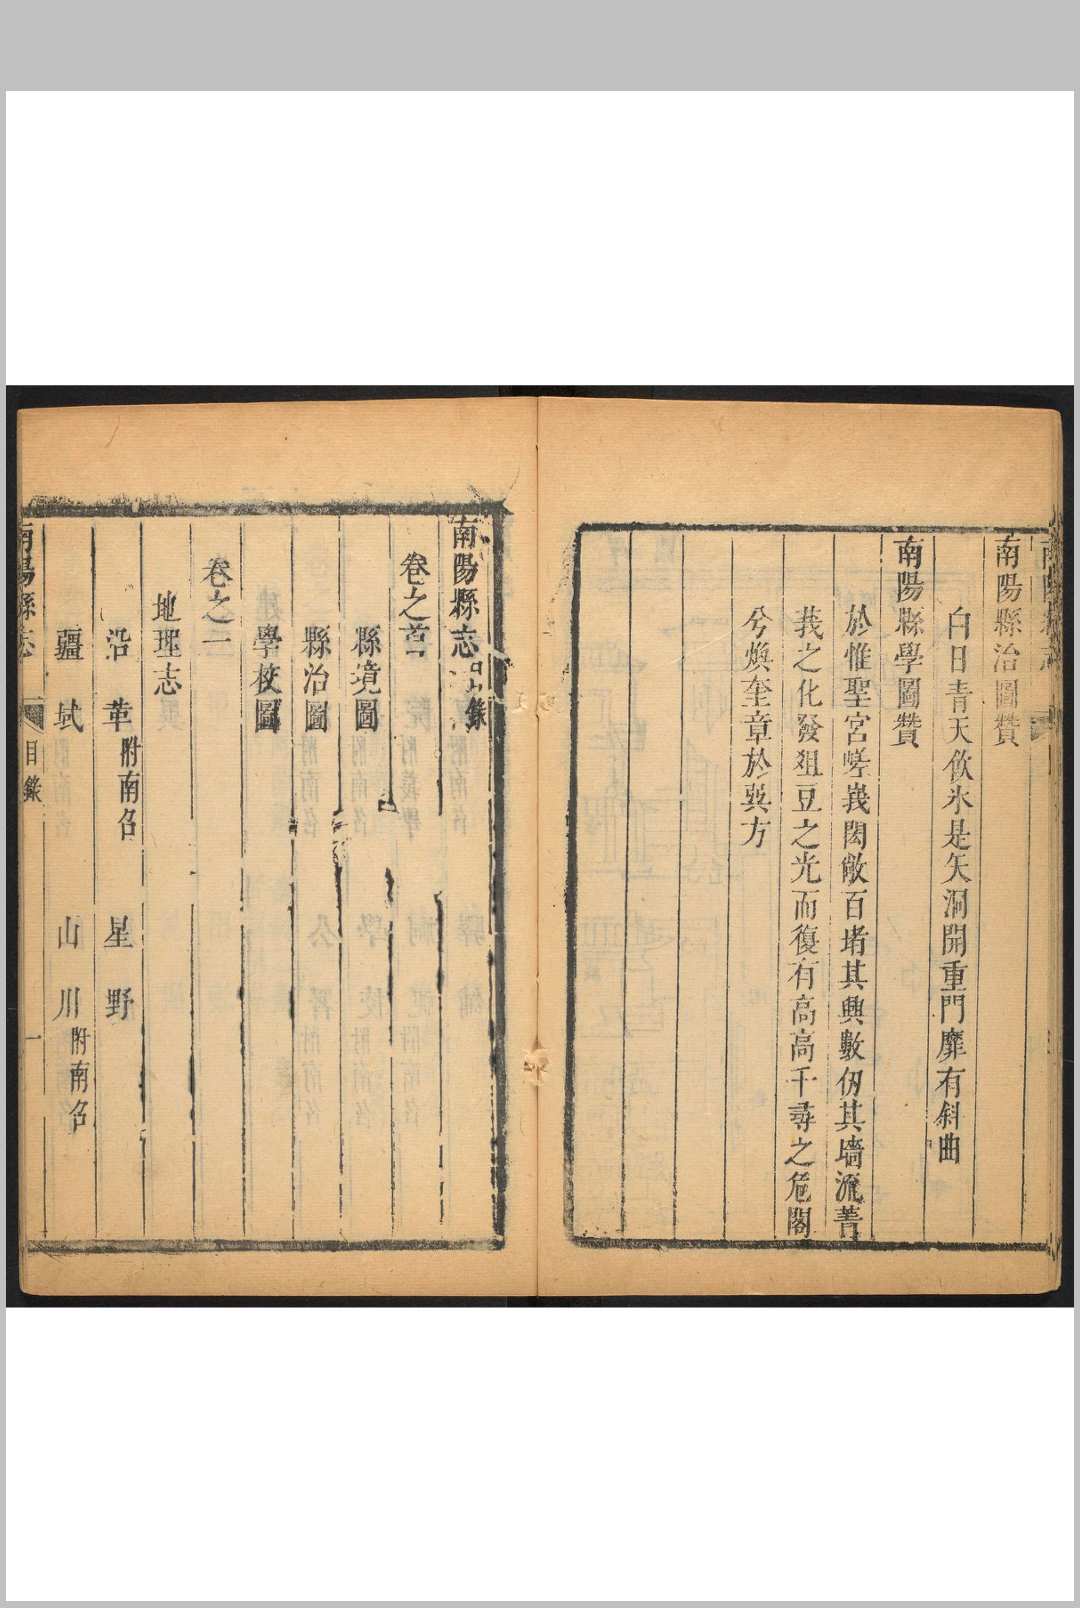 南陽縣治圖贊
白日青天飲氷是矢洞開重門靡有斜曲
南陽縣學圖贊
於惟聖宮嵯峩閎敞百堵其興數仞其墻流菁
莪之化發俎豆之光而復有高高千尋之危閣
兮煥奎章於巽方
南陽縣志目錄
卷之首
縣境圖
縣治圖
學校圖
卷之一
地理志
沿革附南召 星野
疆域 山川附南召
南陽縣志 目錄 一